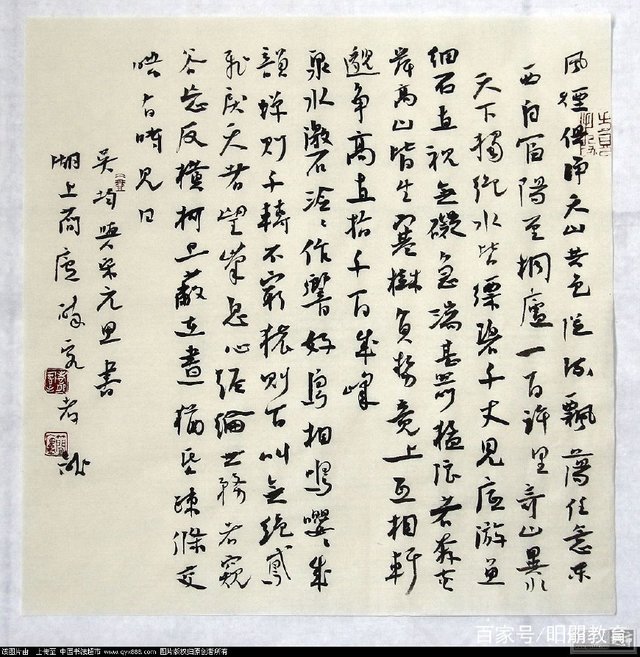 風煙俱淨天山共色從流飄蕩任意東
西自富陽至桐廬一百許里奇山異水
天下獨絕水皆縹碧千丈見底游魚
細石直視無礙急湍甚箭猛浪若奔夾
岸高山皆生寒樹負勢競上互相軒
邈爭高直指千百成峰
泉水激石泠〻作響好鳥相鳴嚶〻成
韻蟬則千轉不窮猿則百叫無絕鳶
飛戾天者望峯息心經綸世務者窺
谷忘反橫柯上蔽在晝猶昏疎條交
映有時見日
吳均與宋元思書
湖上簡廬
百家号/明朋教育
该图片由 上传至 中国书法超市 www.qyx888.com 图片版权归原创者所有